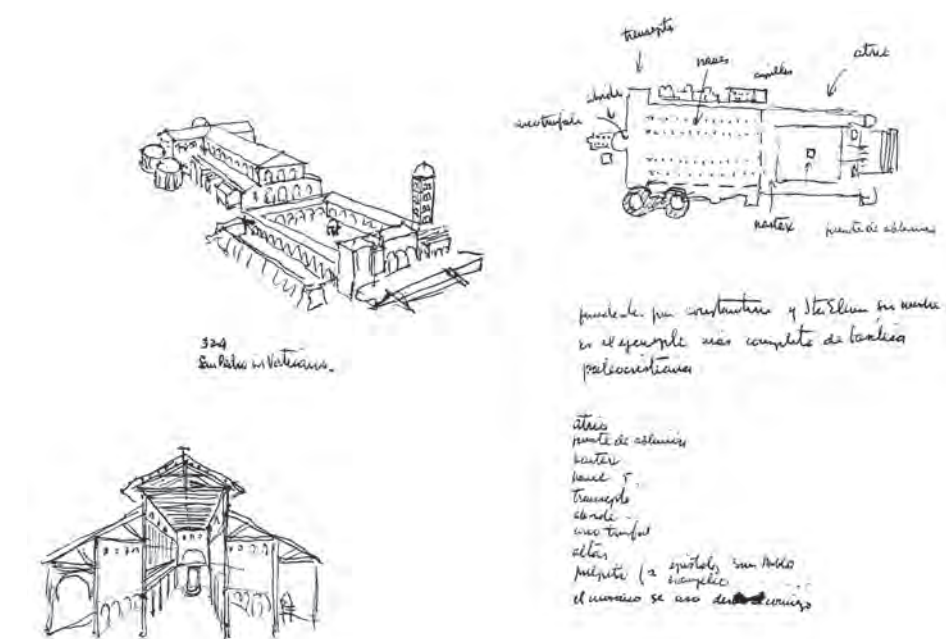 324
San Pedro en Vaticano.
transepto
naves
capillas
atrio
abside
arco triunfal
nartex
fuente de abluciones
fundada por constantino y Sta Elena su madre
es el ejemplo más completo de basilica
paleocristiana
atrio
fuente de abluciones
nartex
naves 5.
transepto
abside
arco triunfal
altar
pulpito (2 epistola, San Pablo
evangelio
el mosaico se uso desde el comienzo